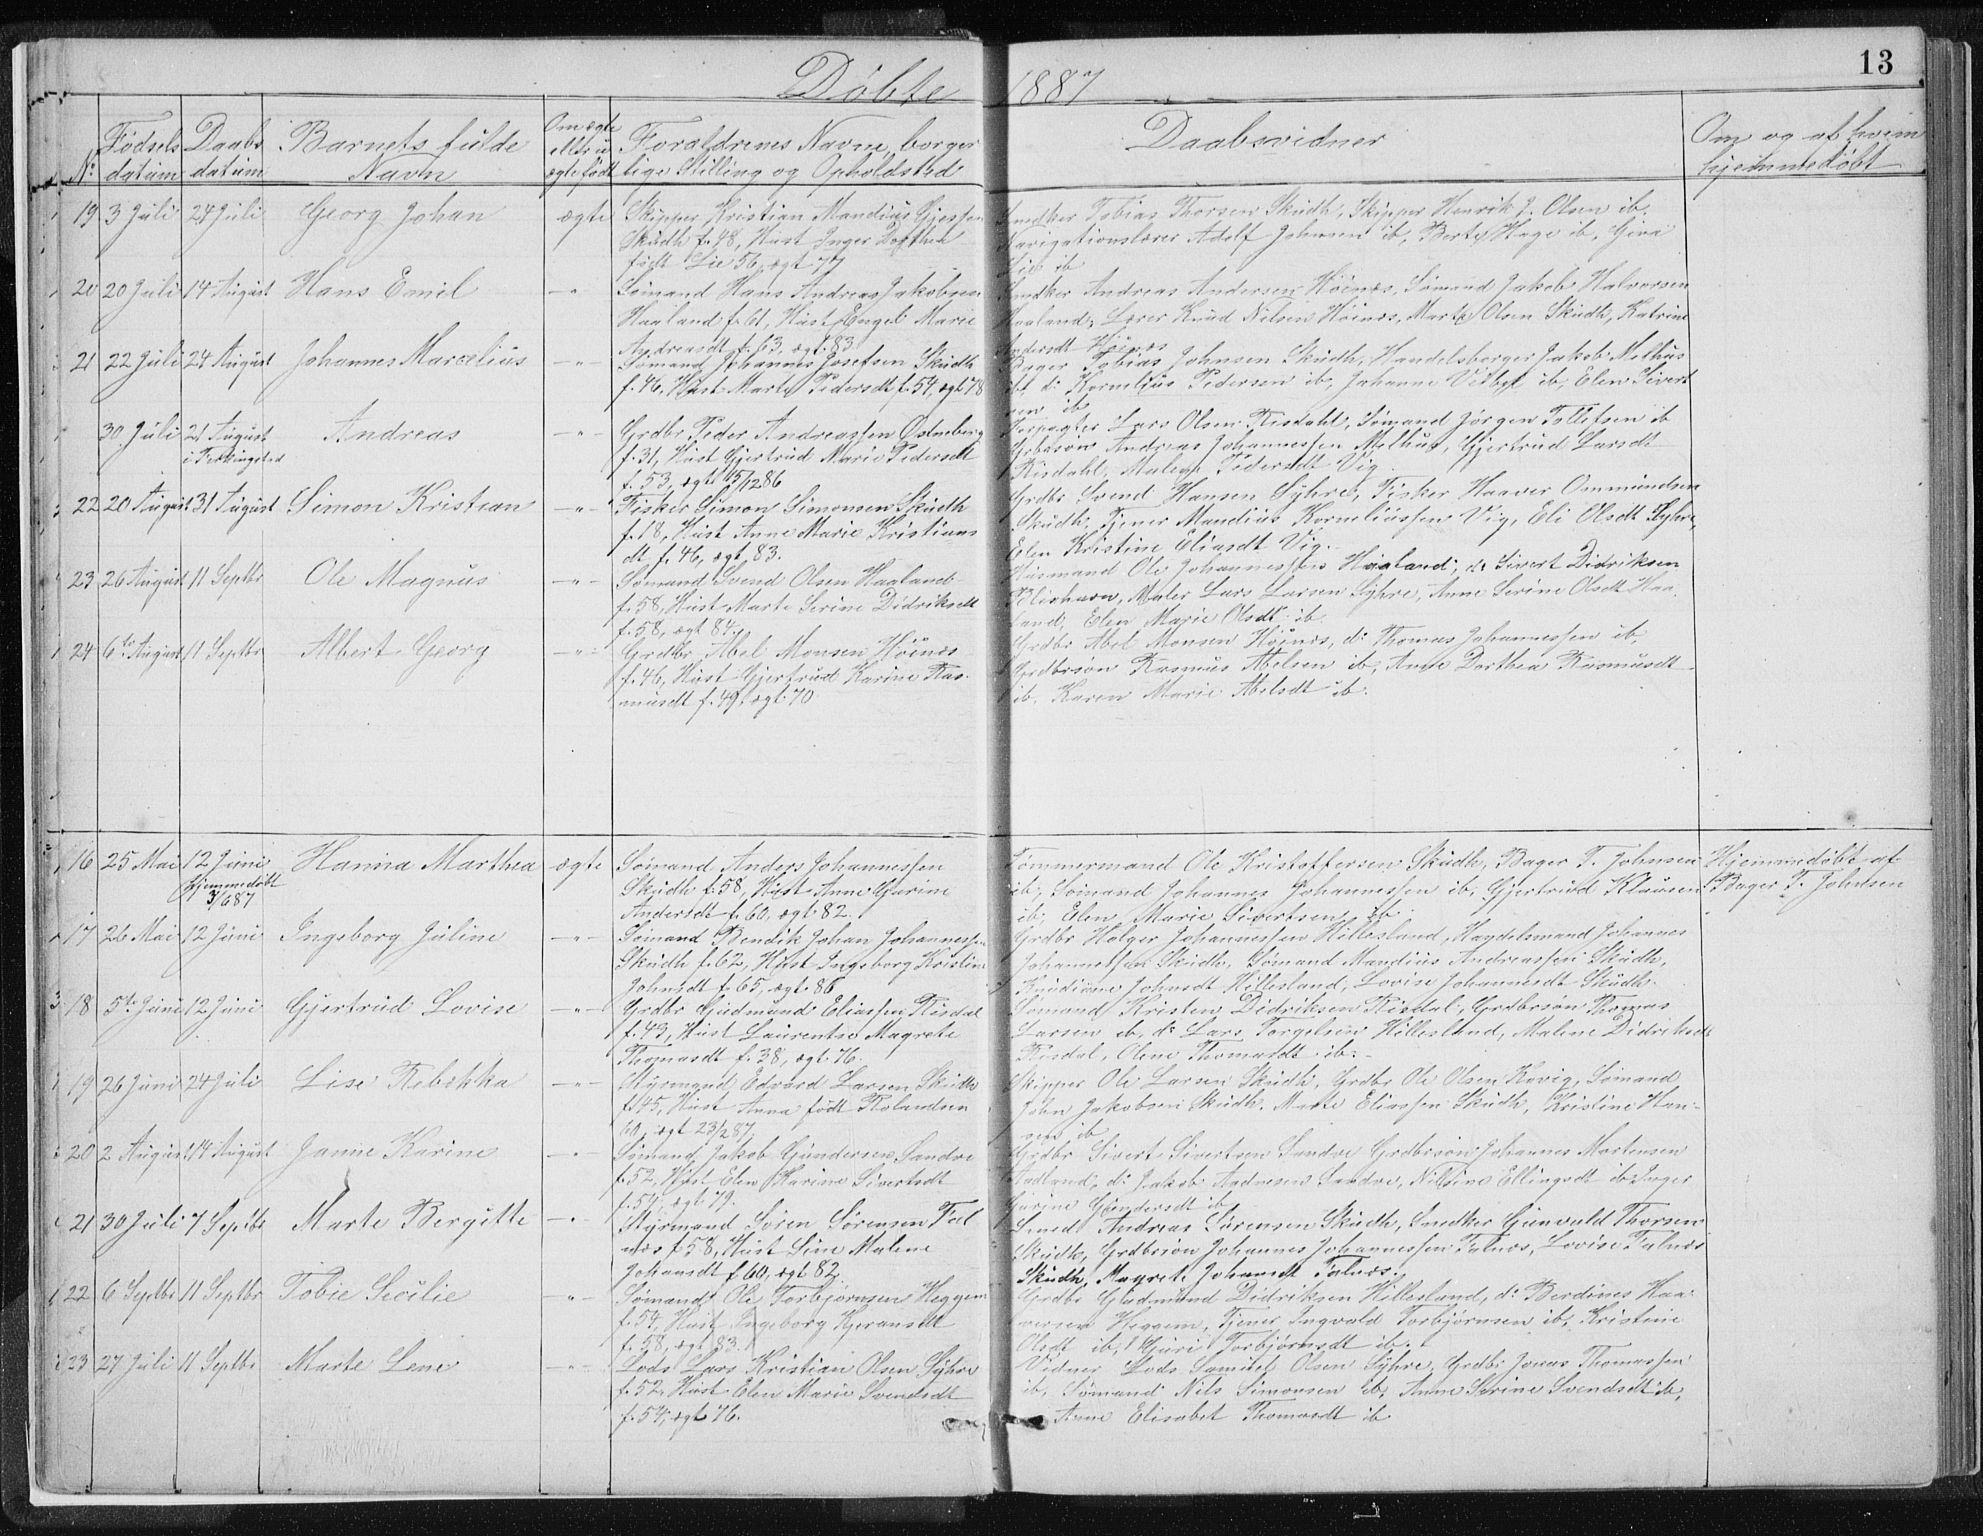 Døbte 1887
13
No
Fødsels datum
Daabs datum
Barnets fulde Navn
Om ægte eller uægte født
Forældrenes Navne, borgerlige Stilling og Opholdsted
Daabsvidner
Om og af hvem hjemmedøbt
19 3 Juli 24 Juli Georg Johan ægte
Skipper Kristian Mandius Gjessen
Skudh f. 48, Hust Inger Dorthea
født Lie 56, ægt 77
Smedker Tobias Thorsen Skudh, Skipper Henrik J. Olsen ib,
Navigationslærer Adolf Johnsen ib, Berte Hage ib, Gina
Lie ib
20 20 Juli 14 August Hans Emil -"-
Sömand Hans Andreas Jakobsen
Haaland f. 61, Hust Engel Marie
Andreasdt f. 63, ægt. 83
Smedker Andreas Andersen Höines, Sömand Jakob Halvorsen
Haaland, Lærer Knud Nilsen Höines, Marte Olsen Skudh, Katrine
Andersdt Höines
21 22 Juli 24 August Johannes Marcelius -"-
Sömand Johannes Josefsen Skudh
f. 46, Hust Marte Pedersdt f. 54, ægt 78
Bager Tobias Johnsen Skudh, Handelsberger Jakob Melhus
ibt, do Kornelius Pedersen ib, Johanne Visbye ib, Elen Sivert
sen ib
30 Juli 21 August Andreas -"-
i Ferkingsted
Grdbr Peder Andreassen Östneberg
f. 31, Hust Gjertrud Marie Pedersdt
f. 53, ægt 15/12 86
Forpagter Lars Olsen Risdahl, Sömand Jörgen Tollefsen ib
Grbrsön Andreas Johannessen Melhus, Gjertrud Larsdt
Risdahl, Malene Pedersdt Vig.
22 20 August 31 August Simon Kristian -"-
Fisker Simon Simonsen Skudh
f. 18, Hust Anne Marie Kristians
dt f. 46, ægt 83.
Grdbr Svend Hansen Syhre, Fisker Haaver Ommundsen
Skudh, Tjener Mandius Korneliussen Vig, Eli Olsdt Syhre,
Elen Kristine Eliasdt Vig.
23 26 August 11 Septbr Ole Magnus -"-
Sömand Svend Olsen Haaland
f. 58, Hust Marte Serine Didriksdt
f. 58, ægt 84.
Husmand Ole Johannessen Haaland, do Sivert Didriksen
Blixhavn, Maler Lars Larsen Syhre, Anne Serine Olsdt Haa
land, Elen Marie Olsdt ib
24 6te August 11 Septbr Albert Georg -"-
Grdbr Abel Monsen Höines
f. 46, Hust Gjertrud Karine Ras
musdt f. 49, ægt 70
Grdbr Abel Monsen Höines, do Thomas Johannessen ib,
Grdbrsön Rasmus Abelsen ib, Anne Dorthea Rasmusdt
ib, Karen Marie Abelsdt ib.
16 25 Mai 12 Juni Hanna Marthea ægte
Hjemmedöbt
3/6 87
Sömand Anders Johannessen
Skudh f. 58, Hust Anne Gurine
Andersdt f. 60, ægt 82.
Tömmermand Ole Kristoffersen Skudh, Bager T. Johnsen
ib, Sömand Johannes Johannessen ib, Gjertrud Klausen
ib, Elen Marie Sivertsen ib
Hjemmedöbt af
Bager T. Johnsen
17 26 Mai 12 Juni Ingeborg Juline -"-
Sömand Bendik Johan Johannessen
Skudh f. 62, Hust Ingeborg Kristine
Johnsdt f. 65, ægt 86
Grdbr Holger Johannessen Hillesland, Handelsmand Johannes
Johannessen Skudh, Sömand Mandius Andreassen Skudh,
Knudiane Johnsdt Hillesland, Lovise Johannesdt Skudh.
18 5te Juni 12 Juni Gjertrud Lovise -"-
Grdbr Gudmund Eliassen Risdal
f. 43, Hust Laurentse Magrete
Thomasdt f. 38, ægt 76.
Sömand Kristen Didriksen Risdal, Grdbrsön Thomas
Larsen ib, do Lars Torgelsen Hillesland, Malene Didriksdt
Risdal, Olene Thomasdt ib.
19 26 Juni 24 Juli Lise Rebekka -"-
Styrmand Edvard Larsen Skudh
f. 45, Hust Anna född Rolandsen
60, ægt 23/2 87.
Skipper Ole Larsen Skudh, Grdbr Ole Olsen Kavig, Sömand
John Jakobsen Skudh, Marte Eliassen Skudh, Kristine Han-
sen ib
20 2 August 14 August Janne Karine -"-
Sömand Jakob Gundersen Sandve
f. 52, Hust Elen Karine Sivertsdt
f. 54, ægt 79.
Grdbr Sivert Sivertsen Sandve, Grdbrsön Johannes Mortensen
Aadland, do Jakob Andresen Sandve, Nilsine Ellingsdt ib, Inger
Gurine Gundersdt ib
21 30 Juli 7 Septbr Marte Bergitte -"-
Styrmand Sören Sörensen Fal
næs f. 58, Hust Line Malene
Johansdt f. 60, ægt 82.
Smed Andreas Sörensen Skudh, Smedker Gunvald Thorsen
Skudh, Grdbrsön Johannes Johannessen Falnæs, Lovise Falnæs
Skudh, Magrete Johansdt Falnæs.
22 6 Septbr 11 Septbr Tobie Secilie -"-
Sömand Ole Torbjörnsen Heggem
f. 54, Hust Ingeborg Kjeransdt
f. 58, ægt 83.
Grdbr Gudmund Didriksen Hillesland, do Berdines Haa
versen Heggem, Tjener Ingvald Torbjörnsen ib, Kristine
Olsdt ib, Guri Torbjörnsdt ib.
23 27 Juli 11 Septbr Marte Lene -"-
Lods Lars Kristian Olsen Syhre
f. 52, Hust Elen Marie Svendsdt
f. 54, ægt 76.
Vidner Lods Samuel Olsen Syhre, Grdbr Jonas Thomassen
ib, Sömand Nils Simonsen ib, Anne Serine Svendsdt ib,
Anne Elisabet Thomasdt ib